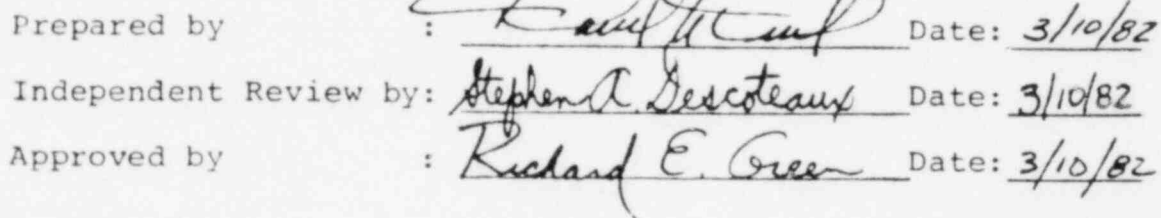 Prepared by : Date: 3/10/82
Independent Review by: Stephen A. Descoteaux Date: 3/10/82
Approved by : Richard E. Green Date: 3/10/82